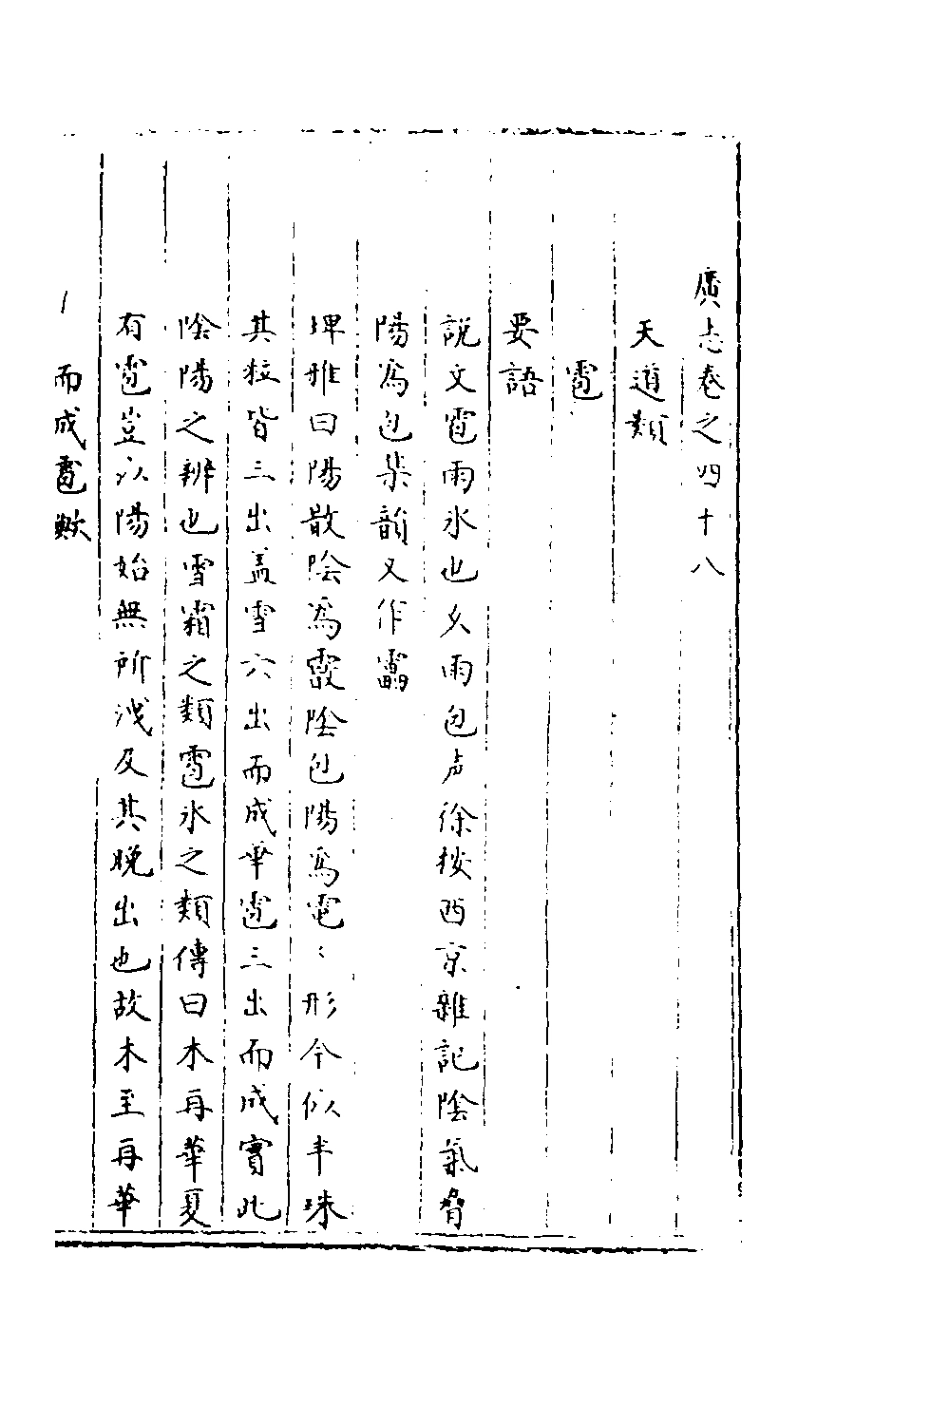 廣志卷之四十八
天道類
雹
要語
説文雹雨氷也从雨包声徐按西京雜記陰氣脅
陽為包集韵又作靐
埤雅曰陽散陰為霰陰包陽為雹〻形今似半珠
其粒皆三出盖雪六出而成華雹三出而成實此
陰陽之辨也雪霜之類雹氷之類傳曰木再華夏
有雹豈以陽始無所洩及其晚出也故木至再華
而成雹歟